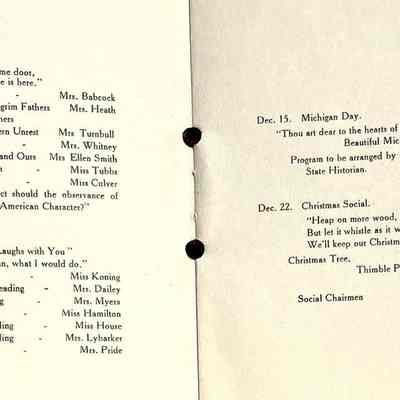 me door,
e is here."
- Mrs. Babcock
grim Fathers Mrs. Heath
hers
ern Unrest Mrs Turnbull
- Mrs. Whitney
and Ours Mrs Ellen Smith
- Miss Tubbs
- Miss Culver
ct should the observance of
American Character?"
Laughs with You"
n, what I would do."
- Miss Koning
eading - Mrs. Dailey
g - Mrs. Myers
- Miss Hamilton
ling - Miss House
ling - Mrs. Lybarker
- Mrs. Pride
Dec. 15. Michigan Day.
"Thou art dear to the hearts of
Beautiful Mic
Program to be arranged by
State Historian.
Dec. 22. Christmas Social.
"Heap on more wood,
But let it whistle as it w
We'll keep our Christm
Christmas Tree,
Thimble P
Social Chairmen